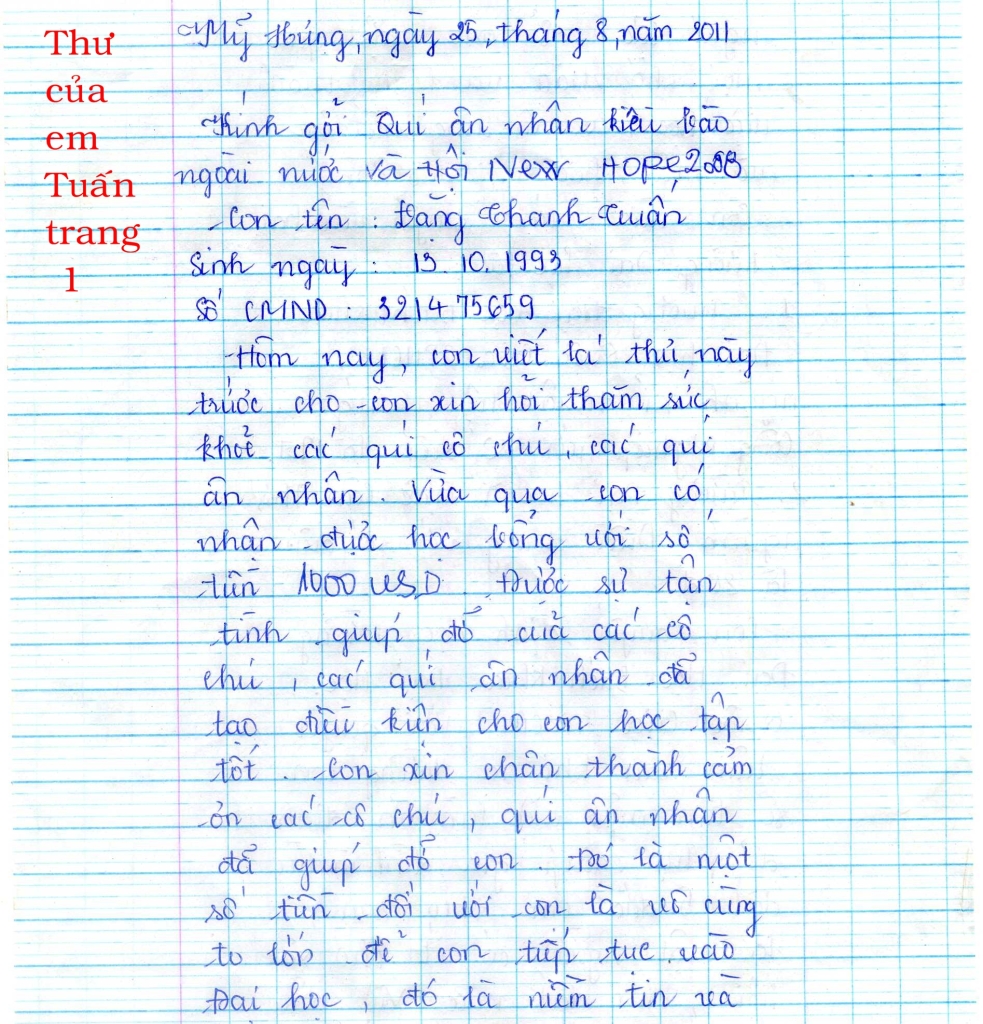 Thư
của
em
Tuấn
trang
1
Mỹ Hưng, ngày 25, tháng 8, năm 2011
Kính gởi Quí ân nhân kiều bào
ngoài nước và Hội New HOPE 2008
Con tên : Đặng Thanh Tuấn
Sinh ngày : 13. 10. 1993
Số CMND : 321475659
Hôm nay, con viết lá thư này
trước cho con xin hỏi thăm sức
khoẻ các quí cô chú, các quí
ân nhân. Vừa qua con có
nhận được học bổng với số
tiền 1000 USD. Được sự tận
tình giúp đỡ của các cô
chú, các quí ân nhân đã
tạo điều kiện cho con học tập
tốt. Con xin chân thành cảm
ơn các cô chú, quí ân nhân
đã giúp đỡ con. Đó là một
số tiền đối với con là vô cùng
to lớn để con tiếp tục vào
Đại học, đó là niềm tin và